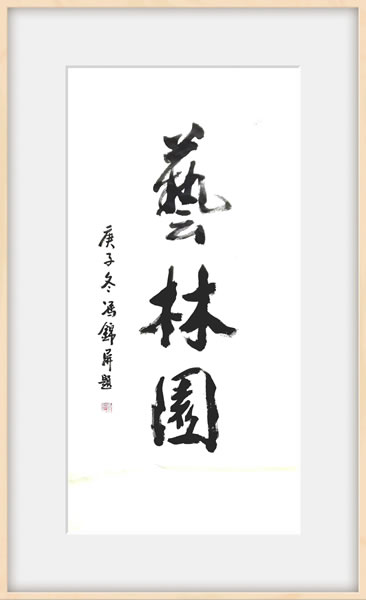 藝林園
庚子冬馮錦屏題